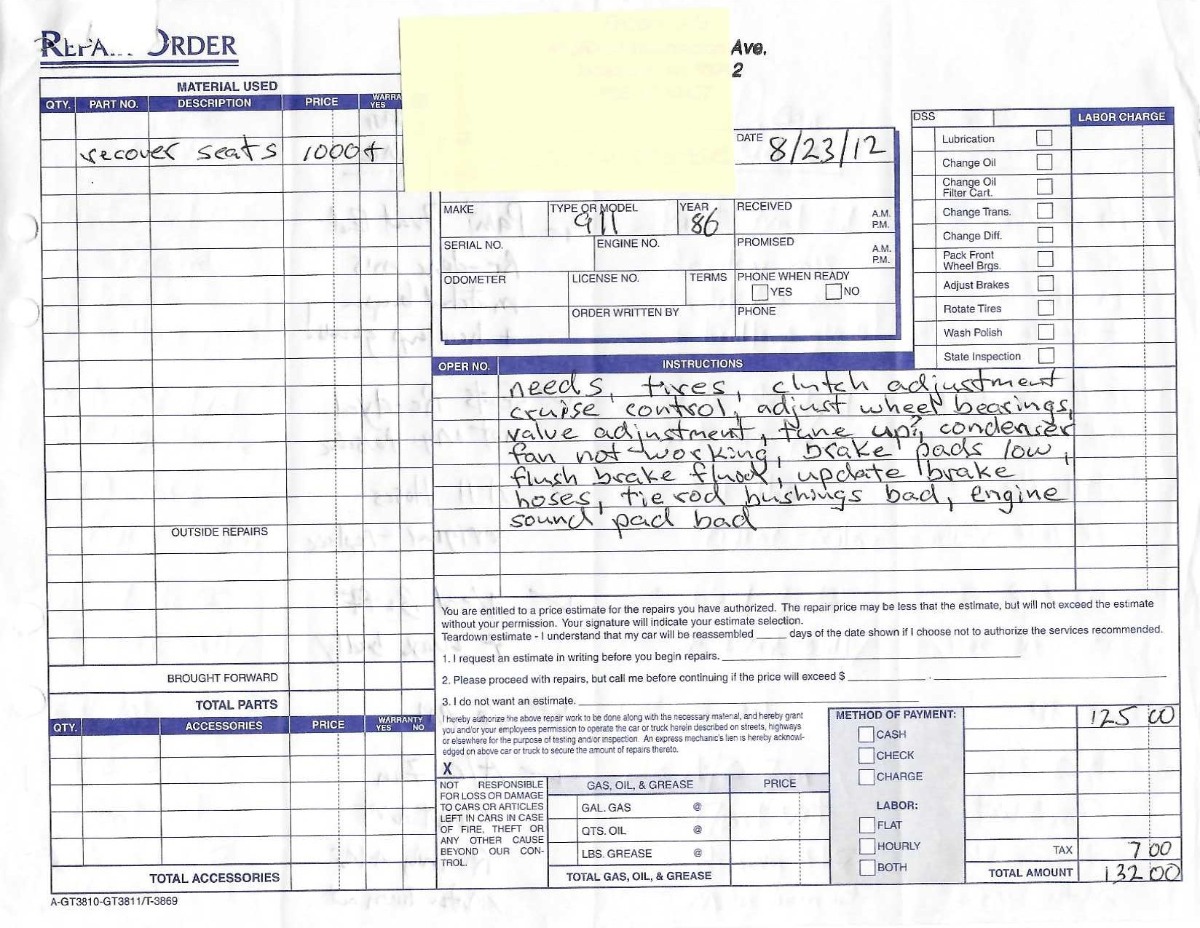 REPA ORDER
Ave.
2
MATERIAL USED
QTY. PART NO. DESCRIPTION PRICE WARRA
YES
recover seats 1000+
OUTSIDE REPAIRS
BROUGHT FORWARD
TOTAL PARTS
QTY. ACCESSORIES PRICE WARRANTY
YES NO
TOTAL ACCESSORIES
A-GT3810-GT3811/T-3869
DATE 8/23/12
MAKE TYPE OR MODEL 911 YEAR 86 RECEIVED A.M.
P.M.
SERIAL NO. ENGINE NO. PROMISED A.M.
P.M.
ODOMETER LICENSE NO. TERMS PHONE WHEN READY
YES NO
ORDER WRITTEN BY PHONE
DSS LABOR CHARGE
Lubrication
Change Oil
Change Oil
Filter Cart.
Change Trans.
Change Diff.
Pack Front
Wheel Brgs.
Adjust Brakes
Rotate Tires
Wash Polish
State Inspection
OPER NO. INSTRUCTIONS
needs, tires, clutch adjustment
cruise control, adjust wheel bearings,
value adjustment, tune up?, condenser
fan not working, brake pads low,
flush brake fluod, update brake
hoses, tie rod bushings bad, engine
sound pad bad
You are entitled to a price estimate for the repairs you have authorized. The repair price may be less that the estimate, but will not exceed the estimate
without your permission. Your signature will indicate your estimate selection.
Teardown estimate - I understand that my car will be reassembled _____ days of the date shown if I choose not to authorize the services recommended.
1. I request an estimate in writing before you begin repairs.
2. Please proceed with repairs, but call me before continuing if the price will exceed $ .
3. I do not want an estimate.
I hereby authorize the above repair work to be done along with the necessary material, and hereby grant
you and/or your employees permission to operate the car or truck herein described on streets, highways
or elsewhere for the purpose of testing and/or inspection. An express mechanic's lien is hereby acknowl-
edged on above car or truck to secure the amount of repairs thereto.
X
NOT RESPONSIBLE
FOR LOSS OR DAMAGE
TO CARS OR ARTICLES
LEFT IN CARS IN CASE
OF FIRE, THEFT OR
ANY OTHER CAUSE
BEYOND OUR CON-
TROL.
GAS, OIL, & GREASE PRICE
GAL. GAS @
QTS. OIL @
LBS. GREASE @
TOTAL GAS, OIL, & GREASE
METHOD OF PAYMENT:
CASH
CHECK
CHARGE
LABOR:
FLAT
HOURLY
BOTH
125 00
TAX 7 00
TOTAL AMOUNT 132 00